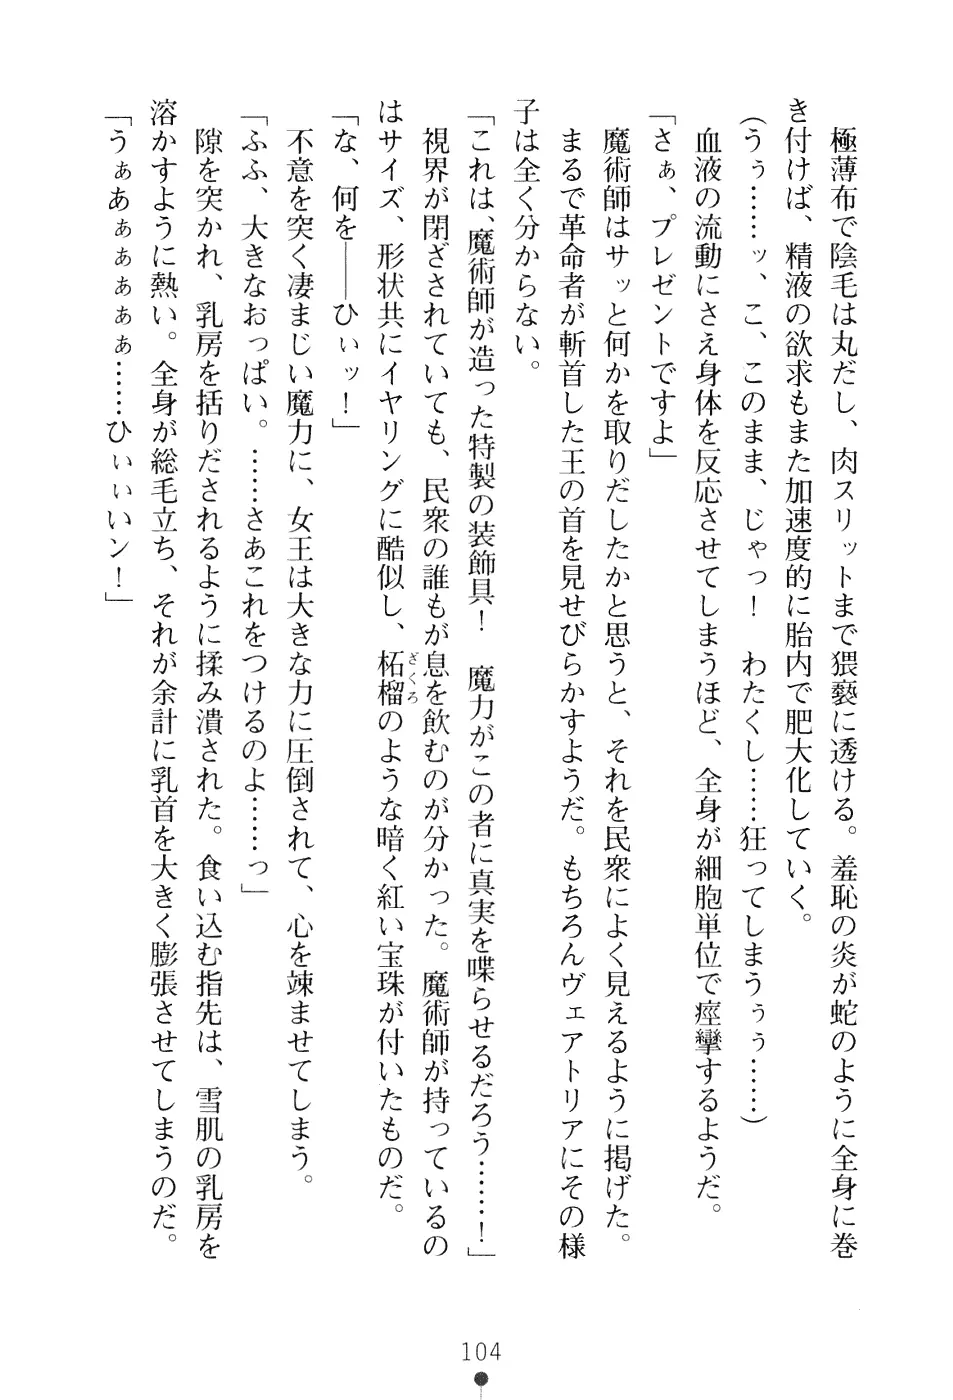 極薄布で陰毛は丸だし、肉スリットまで猥褻に透ける。羞恥の炎が蛇のように全身に巻
き付けば、精液の欲求もまた加速度的に胎内で肥大化していく。
（うぅ……ッ、こ、このまま、じゃっ！　わたくし……狂ってしまうぅぅ……）
　血液の流動にさえ身体を反応させてしまうほど、全身が細胞単位で痙攣するようだ。
「さぁ、プレゼントですよ」
　魔術師はサッと何かを取りだしたかと思うと、それを民衆によく見えるように掲げた。
　まるで革命者が斬首した王の首を見せびらかすようだ。もちろんヴェアトリアにその様
子は全く分からない。
「これは、魔術師が造った特製の装飾具！　魔力がこの者に真実を喋らせるだろう……！」
　視界が閉ざされていても、民衆の誰もが息を飲むのが分かった。魔術師が持っているの
はサイズ、形状共にイヤリングに酷似し、柘榴のような暗く紅い宝珠が付いたものだ。
ざくろ
「な、何を――ひぃッ！」
　不意を突く凄まじい魔力に、女王は大きな力に圧倒されて、心を竦ませてしまう。
「ふふ、大きなおっぱい。……さあこれをつけるのよ……っ」
　隙を突かれ、乳房を括りだされるように揉み潰された。食い込む指先は、雪肌の乳房を
溶かすように熱い。全身が総毛立ち、それが余計に乳首を大きく膨張させてしまうのだ。
「うぁあぁぁぁぁ……ひぃぃイン！」
104